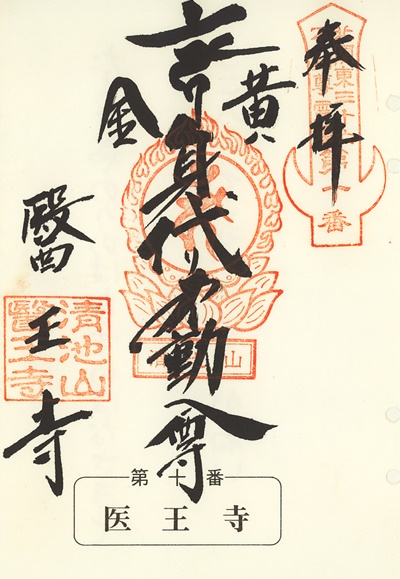 奉拝
黄金
身代り不動尊
醫王寺
清池山
醫王寺
第十番
医王寺